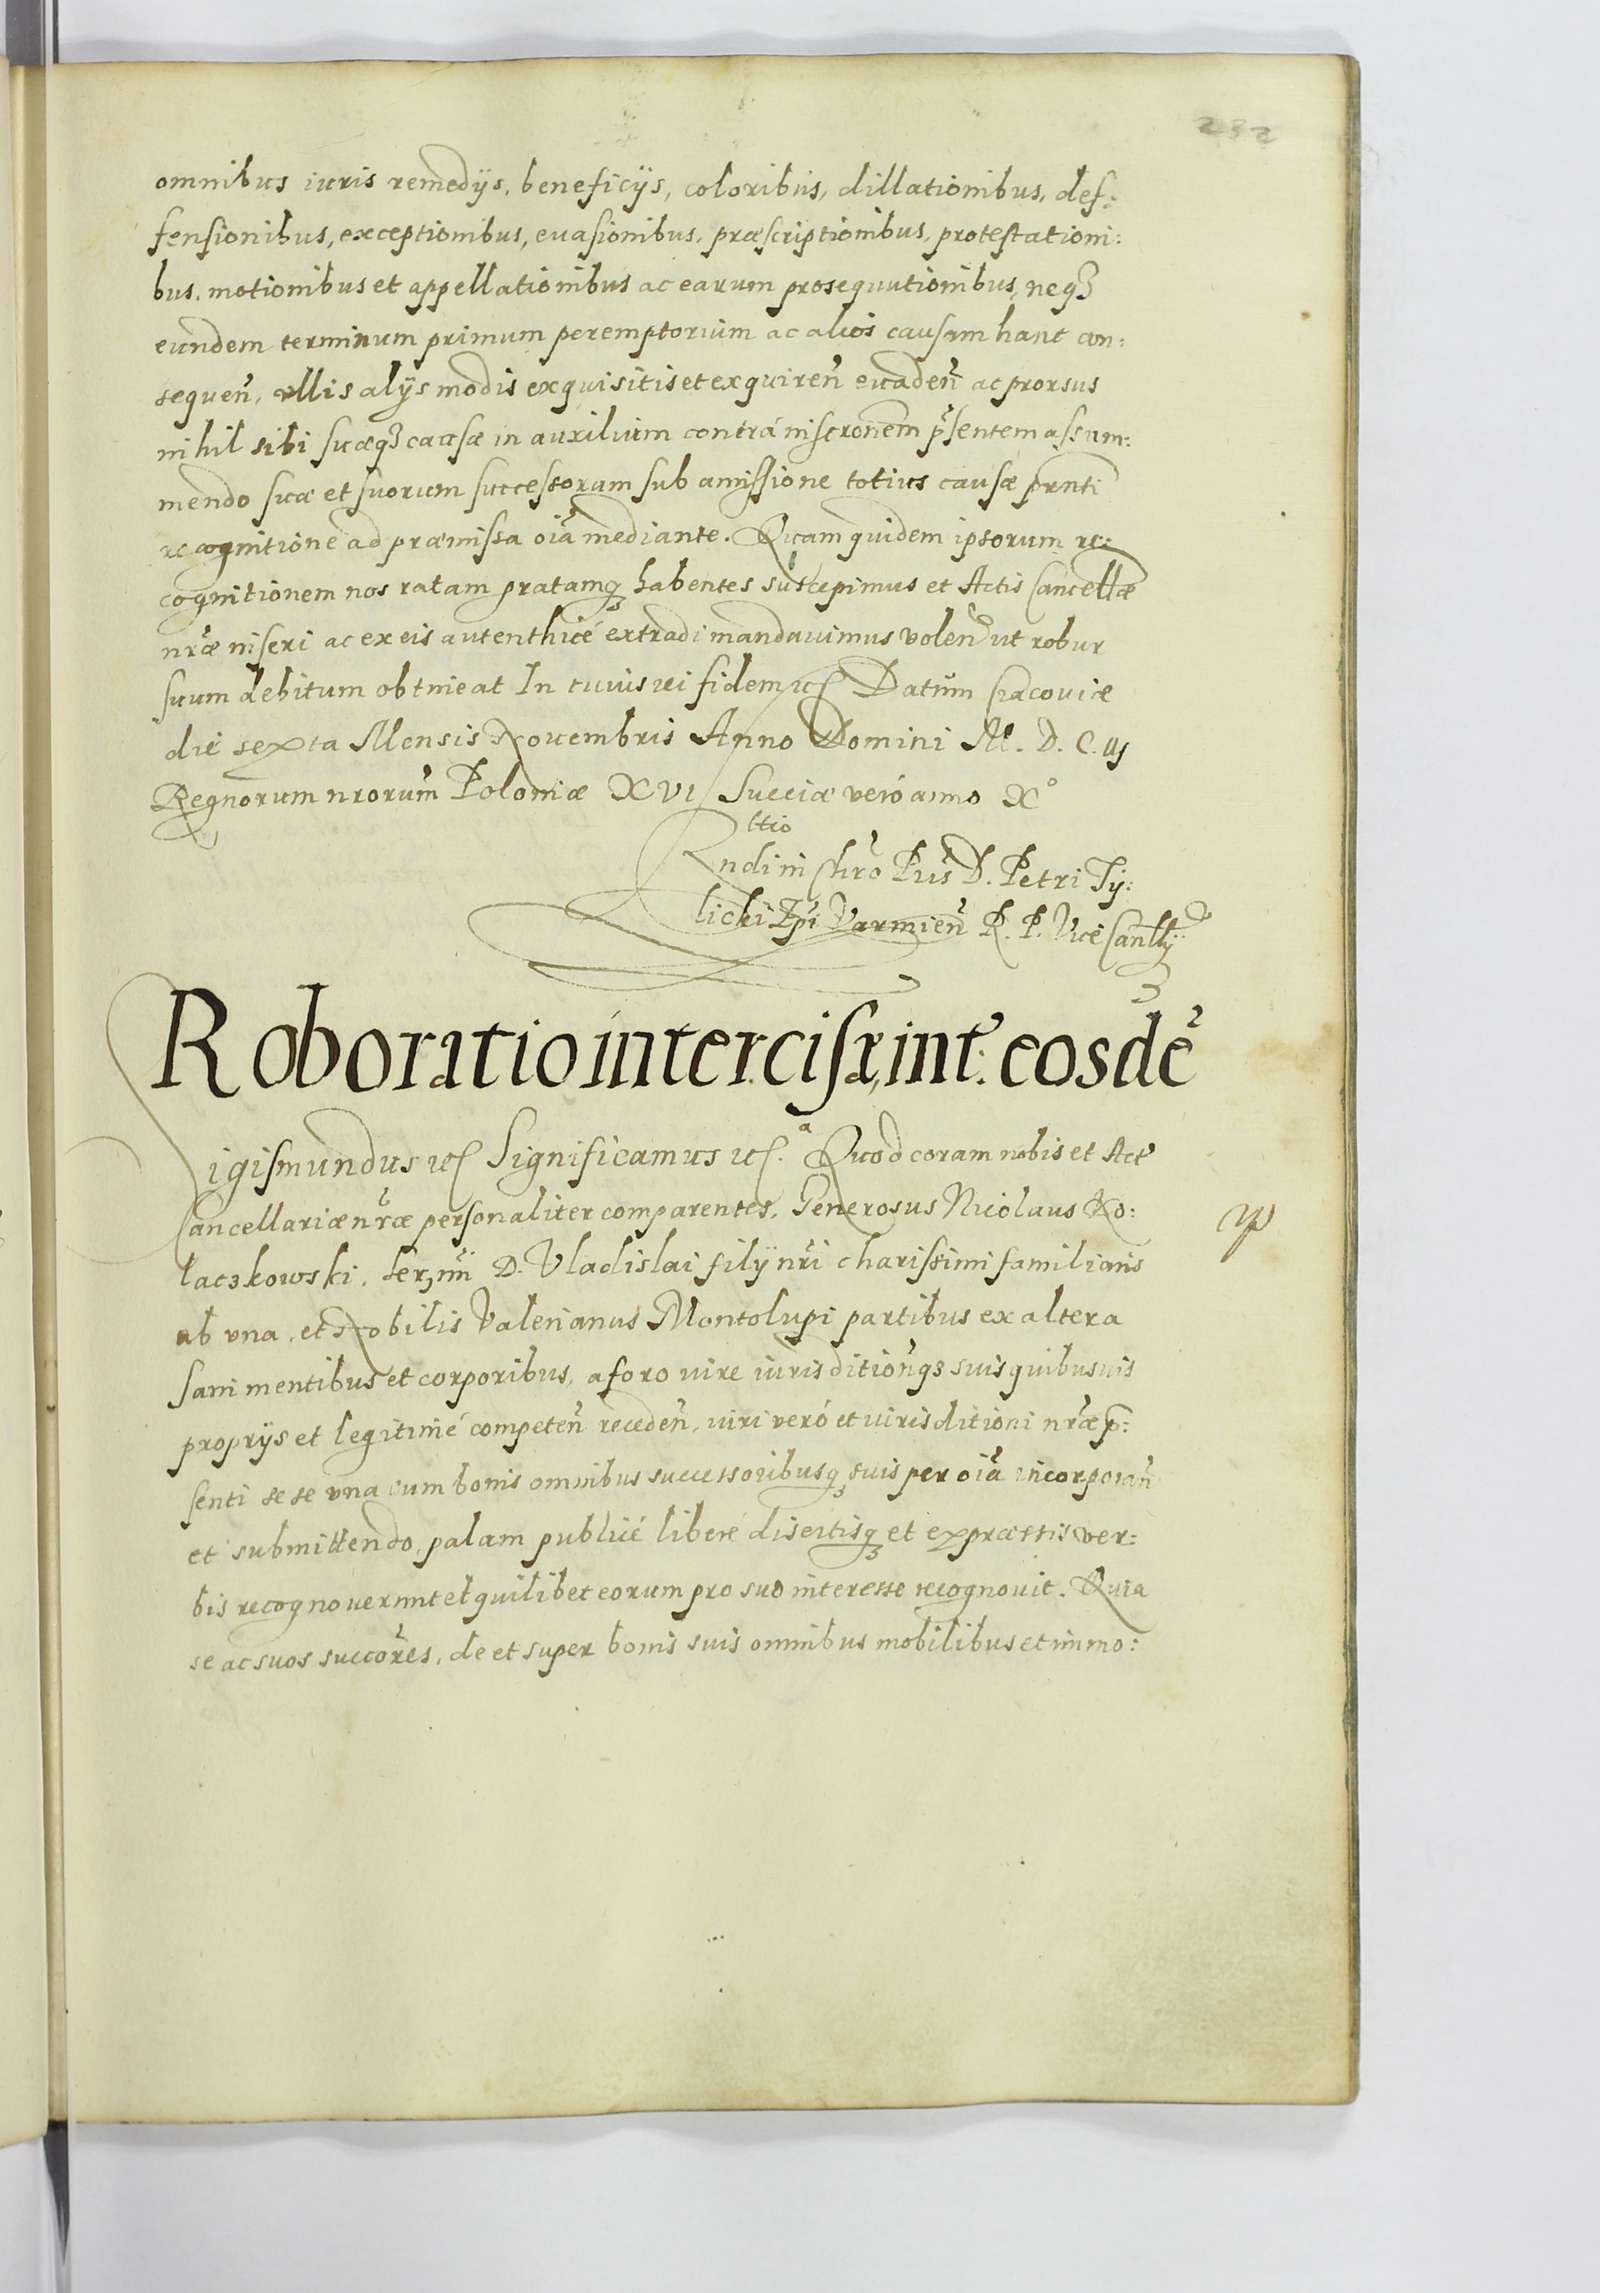 232
omnibus iuris remedijs, beneficijs, coloribus, dillationibus, def:
fensionibus, exceptionibus, euasionibus, præscriptionibus, protestationi:
bus, motionibus et appellationibus ac earum prosequutionibus, neqꝫ
eundem terminum primum peremptorium ac alios causam hanc con:
sequeñ, ullis alijs modis exquisitis et exquireñ euadeñ ac prorsus
nihil sibi suæqꝫ causæ in auxilium contrá inscronem p̃sentem assum:
mendo suæ et suorum successorum sub amissione totius causæ prnti
recognitione ad præmissa oĩa mediante. Quam quidem ipsorum re:
cognitionem nos ratam gratamqꝫ habentes suscepimus et Actis Cancellæ
nr̃æ inseri ac ex eis autenthicé extradi mandauimus volen̄ ut robur
suum debitum obtineat In cuius rei fidem etc Datum Cracouiæ
die sexta Mensis Nouembris Anno Domini M. D. C. iij
Regnorum nrorum̃ Poloniæ XVI Sueciæ veró anno X°
Rttio
Rndi in Chro Pris D. Petri Ty:
licki Epi Varmieñ R. P. Vice Canllrij
Roboratio intercisæ, int: eosdē
Sigismundus etc Significamus etc.ª Quod coram nobis et Act
Cancellariæ nr̃æ personaliter comparentes, Generosus Nicolaus Ko:
laczkowski, Ser,mi D. Vladislai filij nr̃i charissimi familiaris
ab vna, et Nobilis Valerianus Montolupi partibus ex altera
sani mentibus et corporibus, a foro iure iurisditioñqꝫ suis quibusuis
proprijs et legitimé competeñ recedeñ, iuri veró et iurisditioni nr̃æ p̃:
senti se se vna cum bonis omnibus successoribusqꝫ suis per oĩa incorporañ
et submittendo, palam publicé liberé disertisqꝫ et expræssis ver:
bis recognouerunt et quilibet eorum pro suo interesse recognouit. Quia
se ac suos succor̃es, de et super bonis suis omnibus mobilibus et immo: